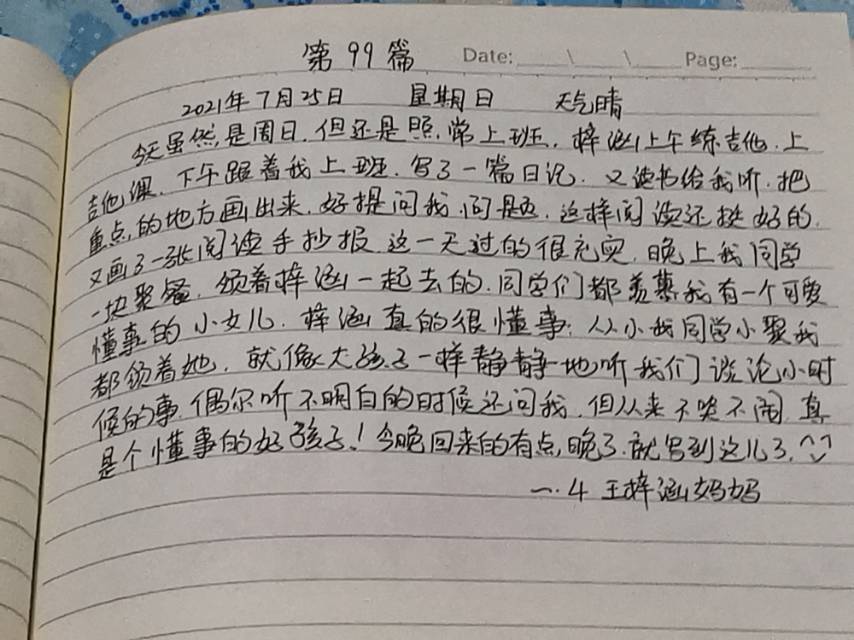 第99篇 Date: Page:
2021年7月25日 星期日 天气晴
今天虽然,是周日.但还是照,常上班.梓涵上午练吉他.上
吉他课.下午跟着我上班.写了一篇日记.又读书给我听.把
重点,的地方画出来.好提问我问题.这样阅读还挺好的.
又画了一张阅读手抄报.这一天过的很充实.晚上我同学
一块聚餐.领着梓涵一起去的.同学们都羡慕我有一个可爱
懂事的小女儿.梓涵真的很懂事:从小我同学小聚我
都领着她.就像大孩子一样静静地听我们谈论小时
候的事.偶尔听不明白的时候还问我.但从来不哭不闹.真
是个懂事的好孩子!今晚回来的有点,晚了.就写到这儿了.
一.4 王梓涵妈妈